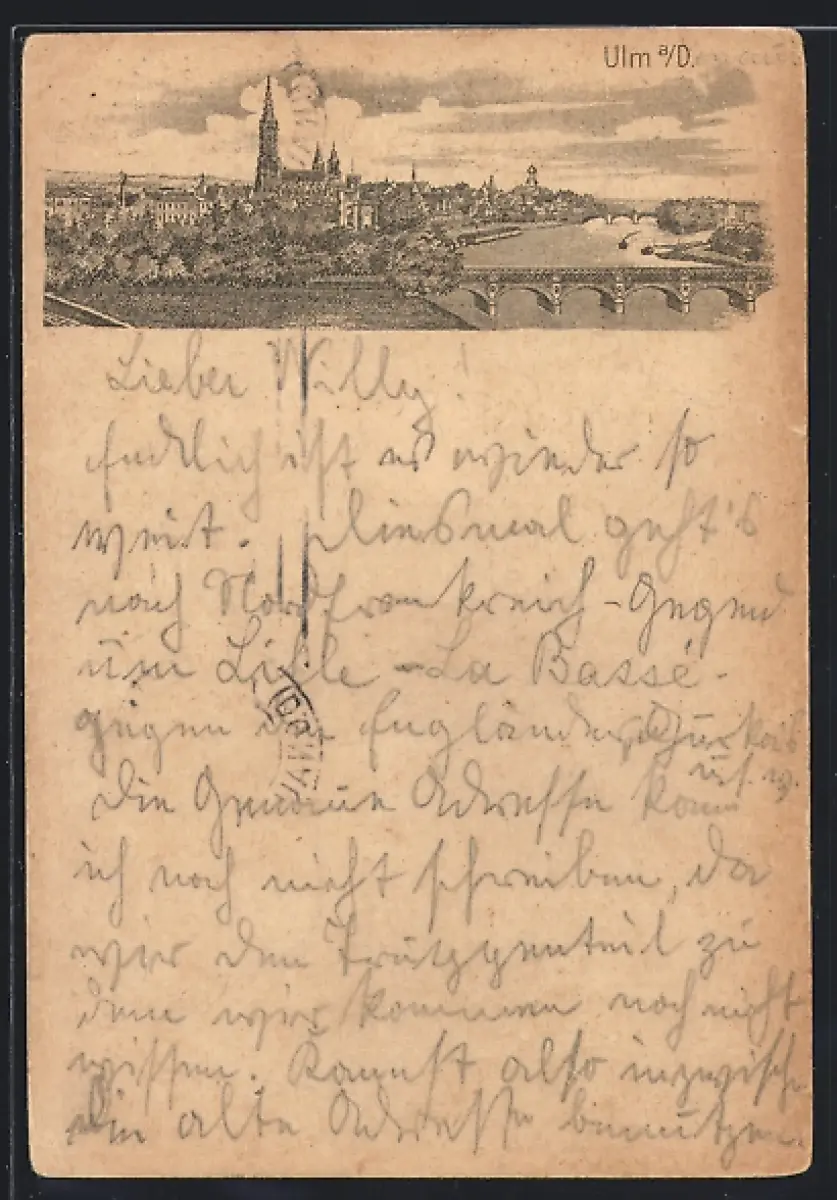 Ulm a/D.
Lieber Willy!
Endlich ist es wieder so
weit. Diesmal geht's
nach Nordfrankreich - Gegend
um Lille - La Bassé -
gegen die Engländer, Gurkas
u. s. w.
Die Genaue Adresse kann
ich noch nicht schreiben, da
wir den Truppenteil zu
dem wir kommen noch nicht
wissen. Kannst also inzwisch.
die alte Adresse benützen.